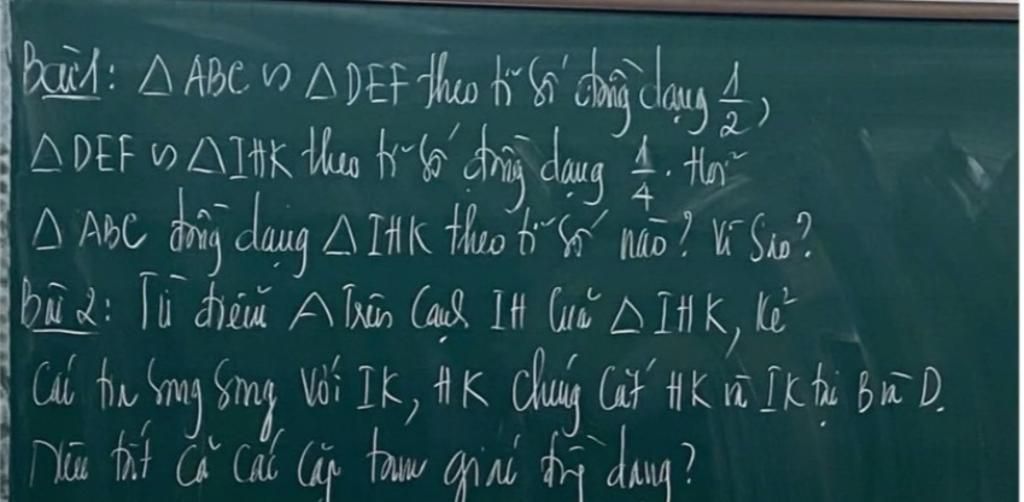 Bài 1: △ ABC ∽ △ DEF theo tỉ số đồng dạng 1/2,
△ DEF ∽ △ IHK theo tỉ số đồng dạng 1/4. Hỏi
△ ABC đồng dạng △ IHK theo tỉ số nào? Vì sao?
Bài 2: Từ điểm A trên cạnh IH của △ IHK, kẻ
các tia song song với IK, HK chúng cắt HK và IK tại B và D.
Nêu tất cả các cặp tam giác đồng dạng?